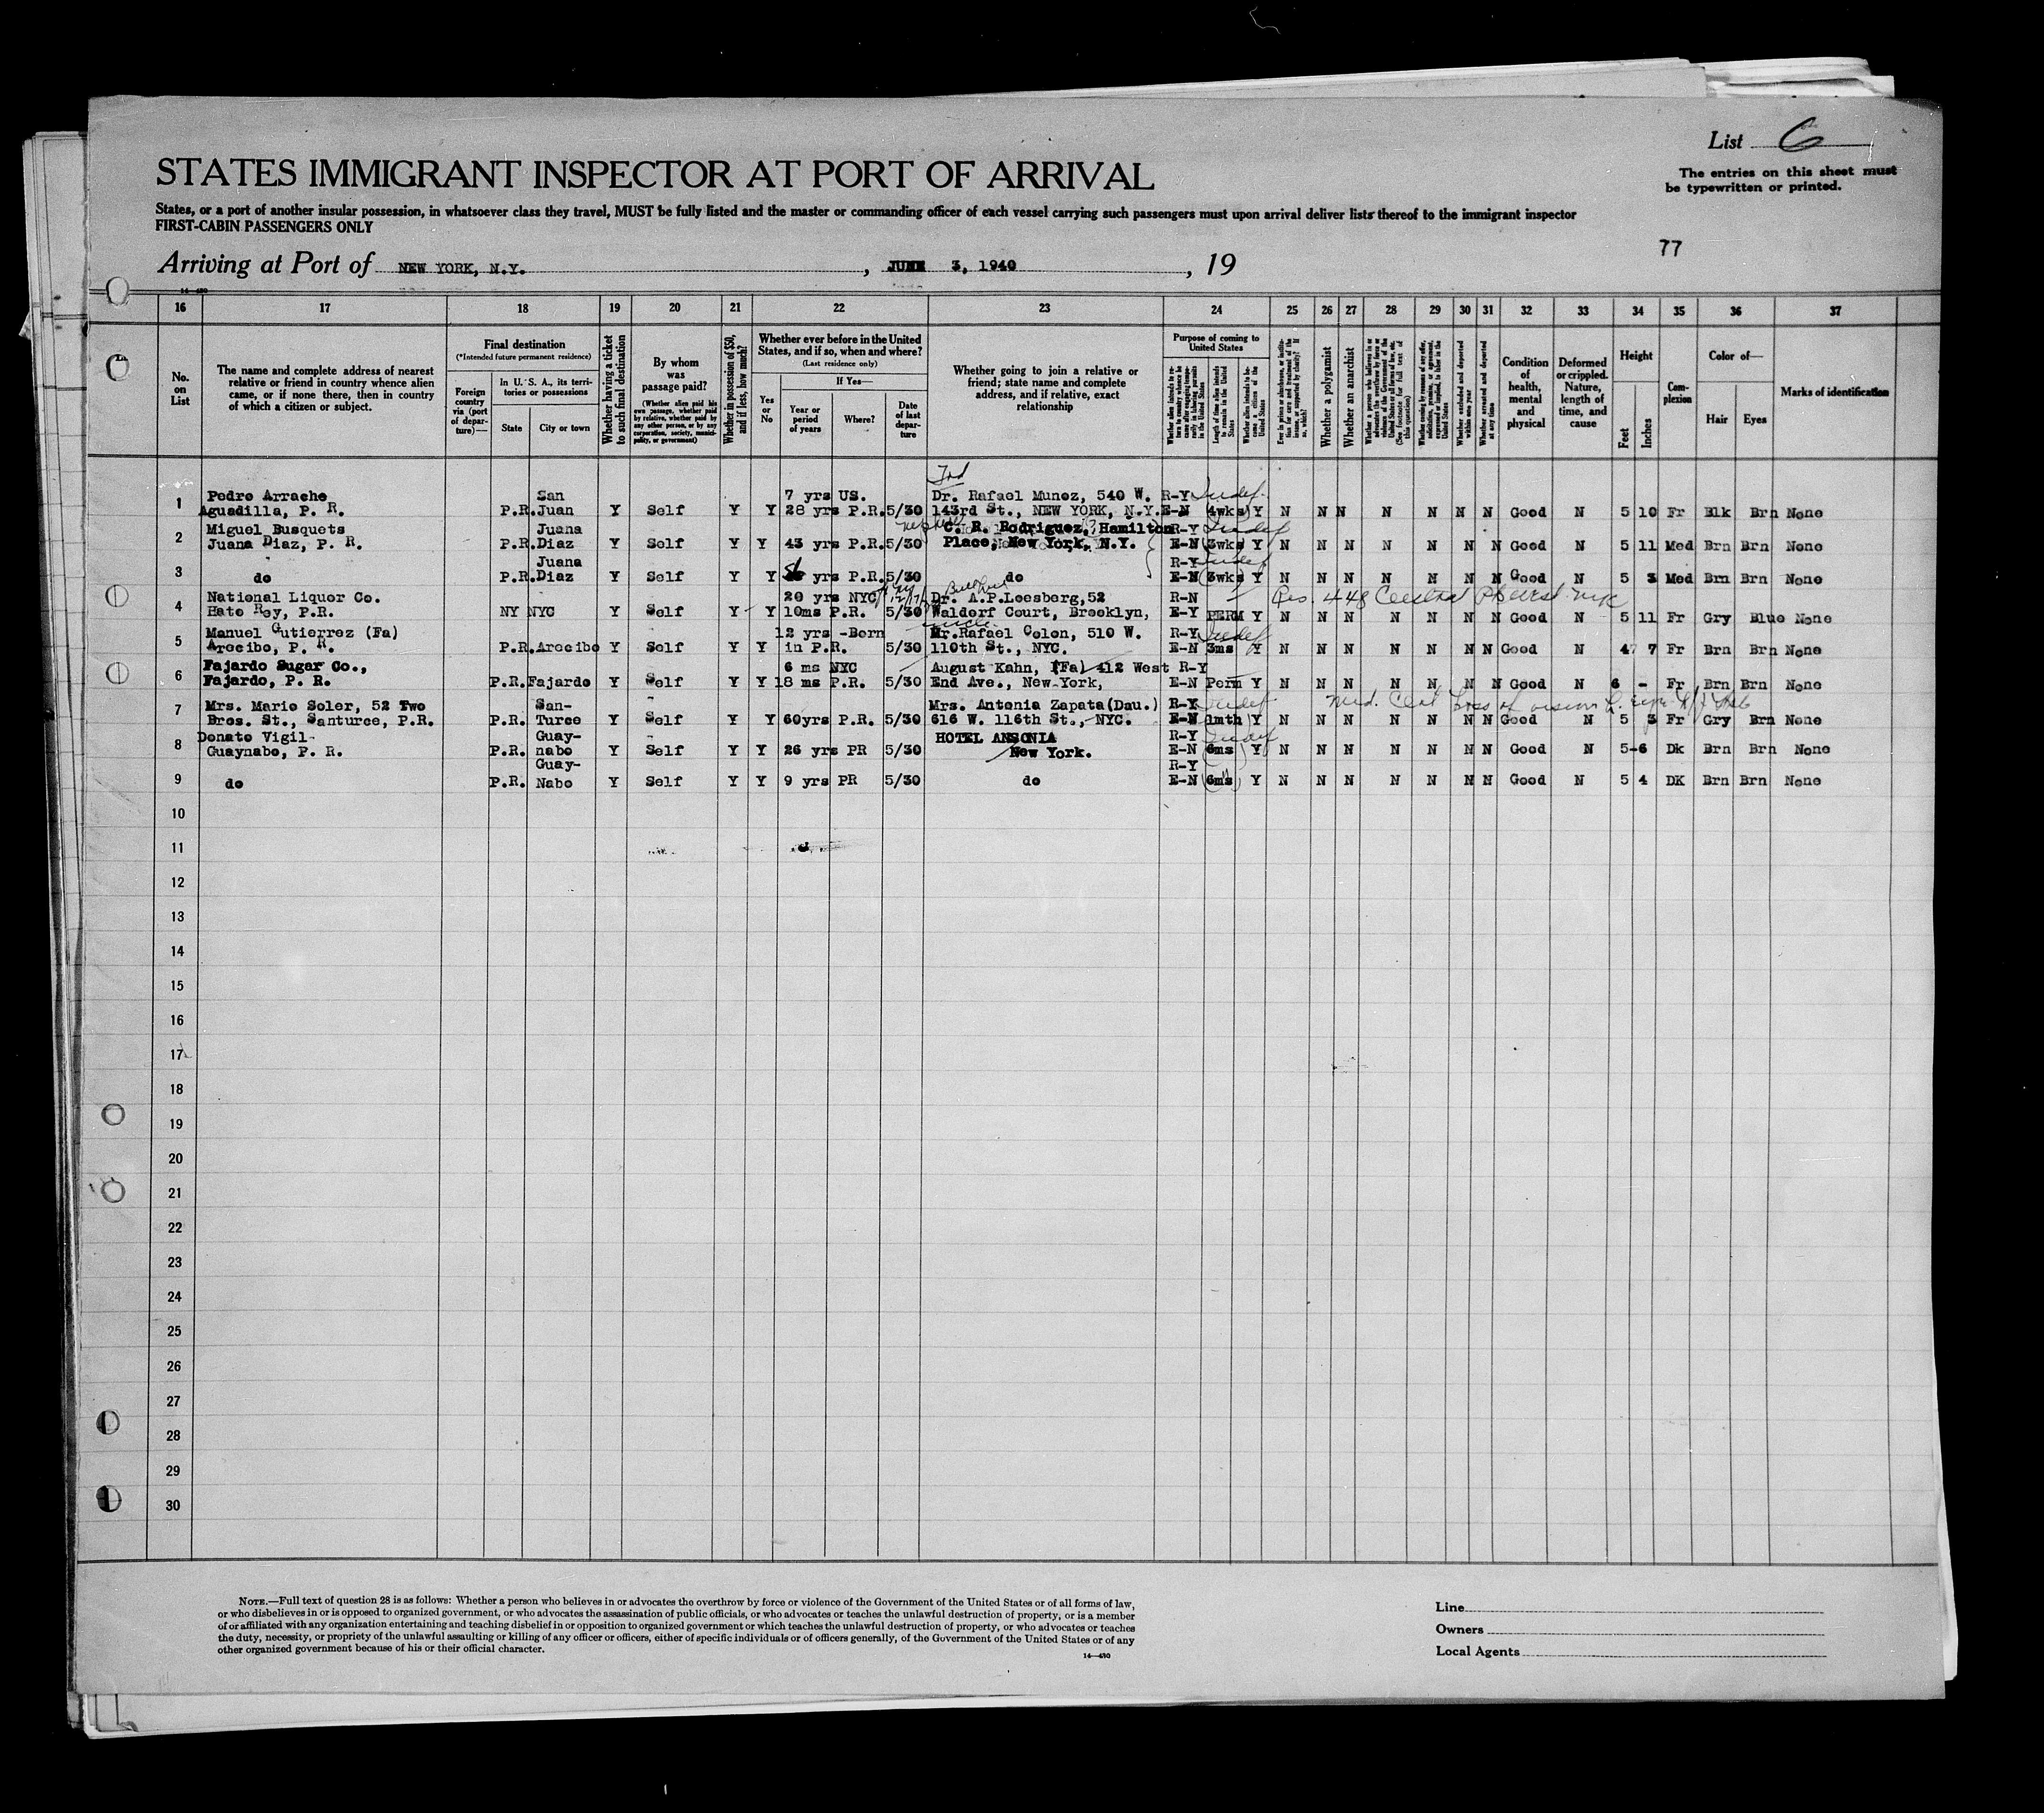 List 6
The entries on this sheet must
be typewritten or printed.
STATES IMMIGRANT INSPECTOR AT PORT OF ARRIVAL
States, or a port of another insular possession, in whatsoever class they travel, MUST be fully listed and the master or commanding officer of each vessel carrying such passengers must upon arrival deliver lists thereof to the immigrant inspector
FIRST-CABIN PASSENGERS ONLY
77
Arriving at Port of NEW YORK, N.Y. , JUNE 3, 1940 , 19
14—430
16 17 18 19 20 21 22 23 24 25 26 27 28 29 30 31 32 33 34 35 36 37
No. on List
The name and complete address of nearest relative or friend in country whence alien came, or if none there, then in country of which a citizen or subject.
Final destination
(*Intended future permanent residence)
Foreign country via (port of departure)—
In U. S. A., its territories or possessions
State
City or town
Whether having a ticket to such final destination
By whom was passage paid?
(Whether alien paid his own passage, whether paid by relative, whether paid by any other person, or by any corporation, society, municipality, or government)
Whether in possession of $50, and if less, how much?
Whether ever before in the United States, and if so, when and where?
(Last residence only)
Yes or No
If Yes—
Year or period of years
Where?
Date of last departure
Whether going to join a relative or friend; state name and complete address, and if relative, exact relationship
Purpose of coming to United States
Length of time alien intends to remain in the United States
Whether alien intends to become a citizen of the United States
Whether a polygamist
Whether an anarchist
Whether excluded and deported within one year
Whether arrested and deported at any time
Condition of health, mental and physical
Deformed or crippled. Nature, length of time, and cause
Height
Feet
Inches
Complexion
Color of—
Hair
Eyes
Marks of identification
Frd
Pedro Arrache San 7 yrs US. Dr. Rafael Munoz, 540 W. R-Y Indef.
1 Aguadilla, P. R. P.R. Juan Y Self Y Y 28 yrs P.R. 5/30 143rd St., NEW YORK, N.Y. E-N (4wks) Y N N N N N N N Good N 5 10 Fr Blk Brn None
nephew
Miguel Busquets Juana C. R. Rodriguez, Hamilton R-Y Indef
2 Juana Diaz, P. R. P.R. Diaz Y Self Y Y 43 yrs P.R. 5/30 Place, New York, N.Y. E-N (3wks) Y N N N N N N N Good N 5 11 Med Brn Brn None
Juana R-Y Indef
3 do P.R. Diaz Y Self Y Y yrs P.R. 5/30 do E-N (3wks) Y N N N N N N N Good N 5 3 Med Brn Brn None
National Liquor Co. 20 yrs NYC Dr. A.P.Loesberg,52 R-N Res. 448 Central Pk West NYC
4 Hato Rey, P.R. NY NYC Y Self Y Y 10ms P.R. 5/30 Waldorf Court, Brooklyn, E-Y PERM Y N N N N N N N Good N 5 11 Fr Gry Blue None
uncle
Manuel Gutierrez (Fa) 12 yrs -Born Mr.Rafael Colon, 510 W. R-Y Indef
5 Arecibo, P. R. P.R. Arecibo Y Self Y Y in P.R. 5/30 110th St., NYC. E-N 3ms Y N N N N N N N Good N 4 7 Fr Brn Brn None
Fajardo Sugar Co., 6 ms NYC August Kahn, (Fa) 412 West R-Y
6 Fajardo, P. R. P.R. Fajardo Y Self Y Y 18 ms P.R. 5/30 End Ave., New York, E-N Perm Y N N N N N N N Good N 6 - Fr Brn Brn None
Mrs. Mario Soler, 52 Two San- Mrs. Antonia Zapata(Dau.) R-Y Indef Med. Cert Loss of vision L. eye
7 Bros. St., Santurce, P.R. P.R. Turce Y Self Y Y 60yrs P.R. 5/30 616 W. 116th St., NYC. E-N 1mth Y N N N N N N N Good N 5 3 Fr Gry Brn None
Donato Vigil Guay- HOTEL ANSONIA R-Y Indef
8 Guaynabo, P. R. P.R. nabo Y Self Y Y 26 yrs PR 5/30 New York. E-N (6ms) Y N N N N N N N Good N 5-6 Dk Brn Brn None
Guay- R-Y
9 do P.R. Nabo Y Self Y Y 9 yrs PR 5/30 do E-N (6ms) Y N N N N N N N Good N 5 4 DK Brn Brn None
10
11
12
13
14
15
16
17
18
19
20
21
22
23
24
25
26
27
28
29
30
NOTE.—Full text of question 28 is as follows: Whether a person who believes in or advocates the overthrow by force or violence of the Government of the United States or of all forms of law,
or who disbelieves in or is opposed to organized government, or who advocates the assassination of public officials, or who advocates or teaches the unlawful destruction of property, or is a member
of or affiliated with any organization entertaining and teaching disbelief in or opposition to organized government or which teaches the unlawful destruction of property, or who advocates or teaches
the duty, necessity, or propriety of the unlawful assaulting or killing of any officer or officers, either of specific individuals or of officers generally, of the Government of the United States or of any
other organized government because of his or their official character.
14—430
Line
Owners
Local Agents